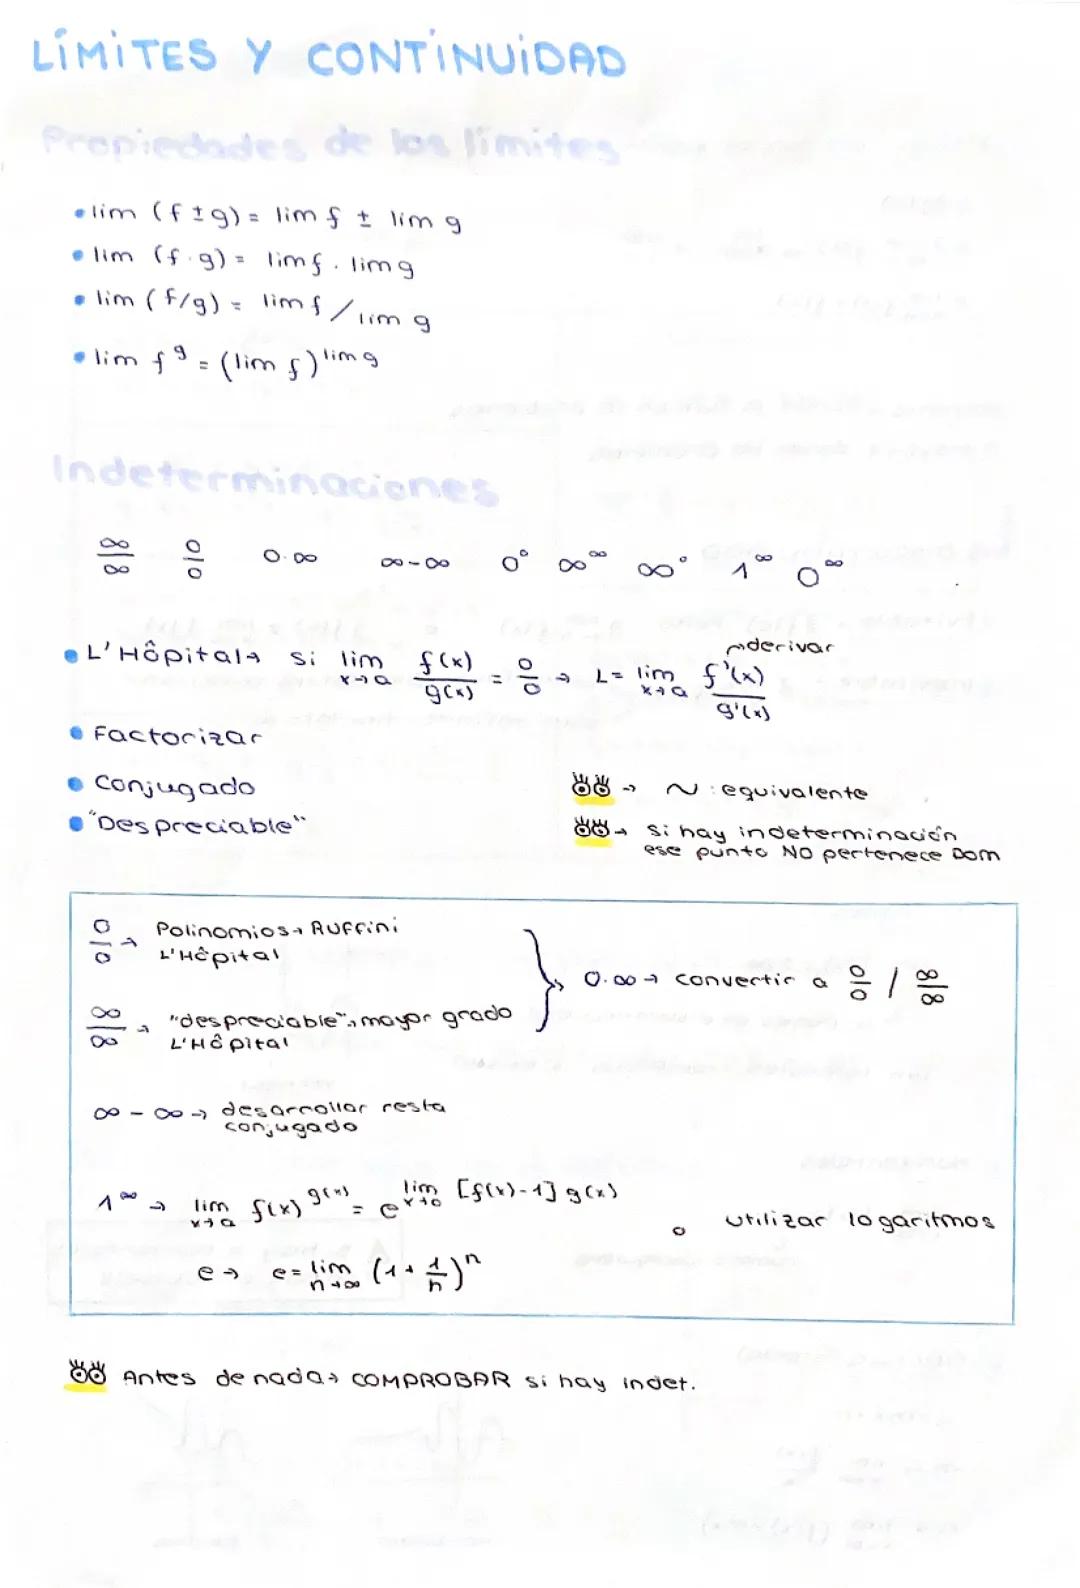 LÍMITES Y CONTINUIDAD
Propiedades de los límites
• lim (f ± g) = lim f ± lim g
• lim (f · g) = lim f . lim g
• lim (f/g) = lim f / lim g
• lim f^g = (lim f)^lim g
Indeterminaciones
∞/∞ 0/0 0·∞ ∞-∞ 0^0 ∞^∞ ∞^0 1^∞ 0^∞
→derivar
• L'Hôpital→ si lim x→a f(x)/g(x) = 0/0 → L = lim x→a f'(x)/g'(x)
• Factorizar
• Conjugado
→ ~ : equivalente
• "Despreciable"
→ si hay indeterminación
ese punto NO pertenece Dom
0/0 → Polinomios→ Ruffini
L'Hôpital
} → 0·∞ → convertir a 0/0 / ∞/∞
∞/∞ → "despreciable", mayor grado
L'Hôpital
∞ - ∞ → desarrollar resta
conjugado
1^∞ → lim x→a f(x)^g(x) = e^lim x→0 [f(x)-1] g(x)
o utilizar logaritmos
e → e = lim n→∞ (1 + 1/n)^n
Antes de nada→ COMPROBAR si hay indet.